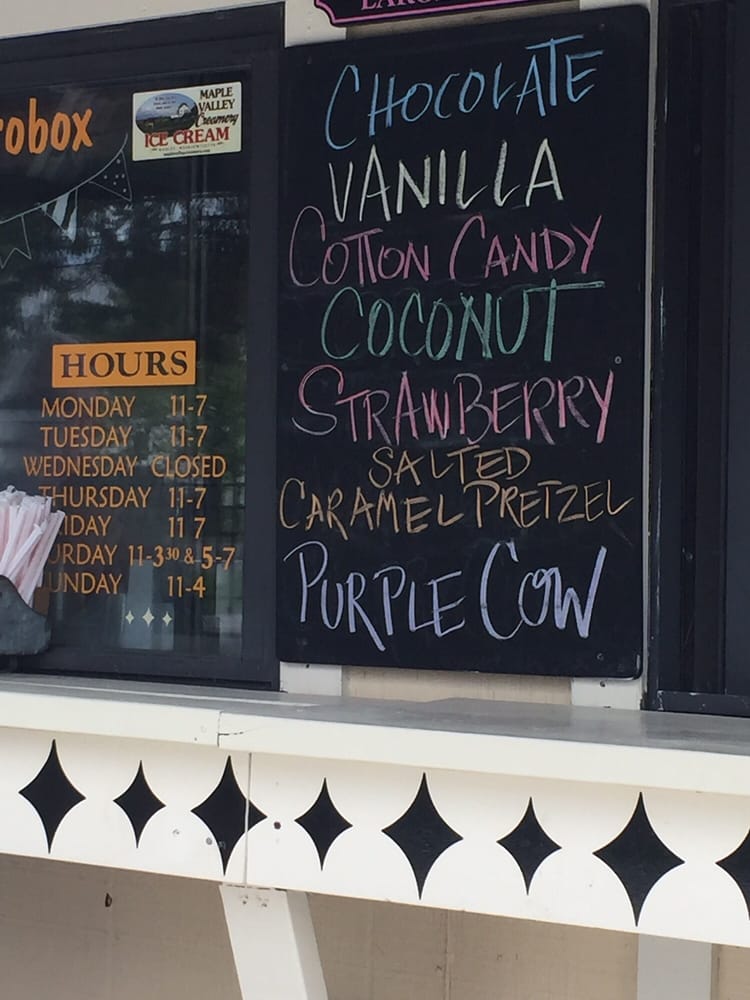 CHOCOLATE
VANILLA
COTTON CANDY
COCONUT
STRAWBERRY
SALTED
CARAMEL PRETZEL
PURPLE COW
robox
MAPLE
VALLEY
Creamery
ICE CREAM
HOURS
MONDAY 11-7
TUESDAY 11-7
WEDNESDAY CLOSED
THURSDAY 11-7
IDAY 11 7
URDAY 11-3³⁰ & 5-7
UNDAY 11-4